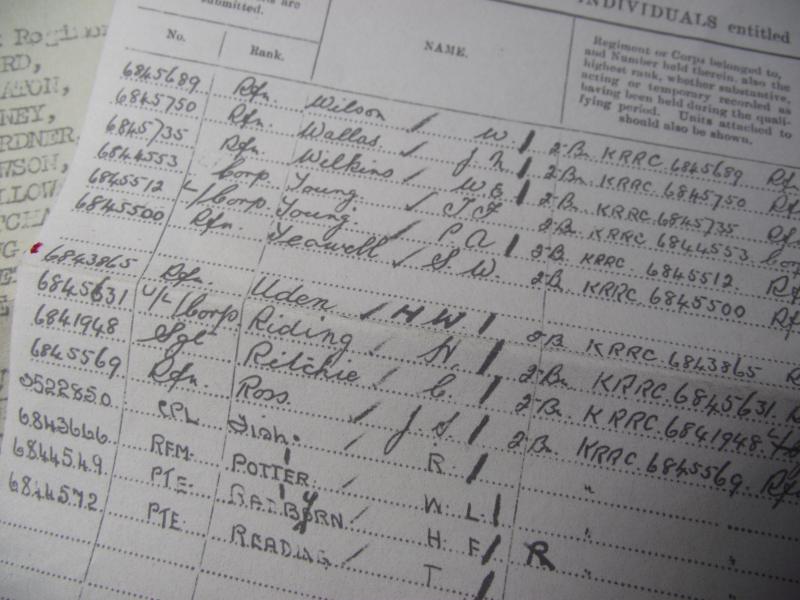 rd,
aton,
ney,
rdner,
wson,
INDIVIDUALS entitled
are
submitted.
No. Rank. NAME. Regiment or Corps belonged to, and Number held therein, also the highest rank, whether substantive, acting or temporary recorded as having been held during the qualifying period. Units attached to should also be shown.
6845689 Rfn. Wilson / W. / 2 Bn KRRC 6845689 Rfn
6845750 Rfn Wallas / J N / 2 Bn KRRC 6845750 Rfn
6845735 Rfn Wilkins / W E / 2 Bn KRRC 6845735 Rfn
6844553 Corp Young / T F 2 Bn KRRC 6844553 Corp
6845512 L/Corp Young / P A / 2 Bn KRRC 6845512
6845500 Rfn. / S W. 2 Bn KRRC 6845500 Rfn
6843865 Rfn. Uden / H W. / 2 Bn KRRC 6843865
6845631 U/L/Corp Riding / / 2 Bn KRRC 6845631
6841948 Sgt Ritchie / C. / 2 Bn KRRC 6841948
6845569 Rfn. Ross / J S / 2 Bn KRRC 6845569 Rfn
CPL Fish. / R. / "
6843666 RFM. POTTER / W. L. / "
6844549 PTE. / H F / R "
6844572 PTE READING / T /